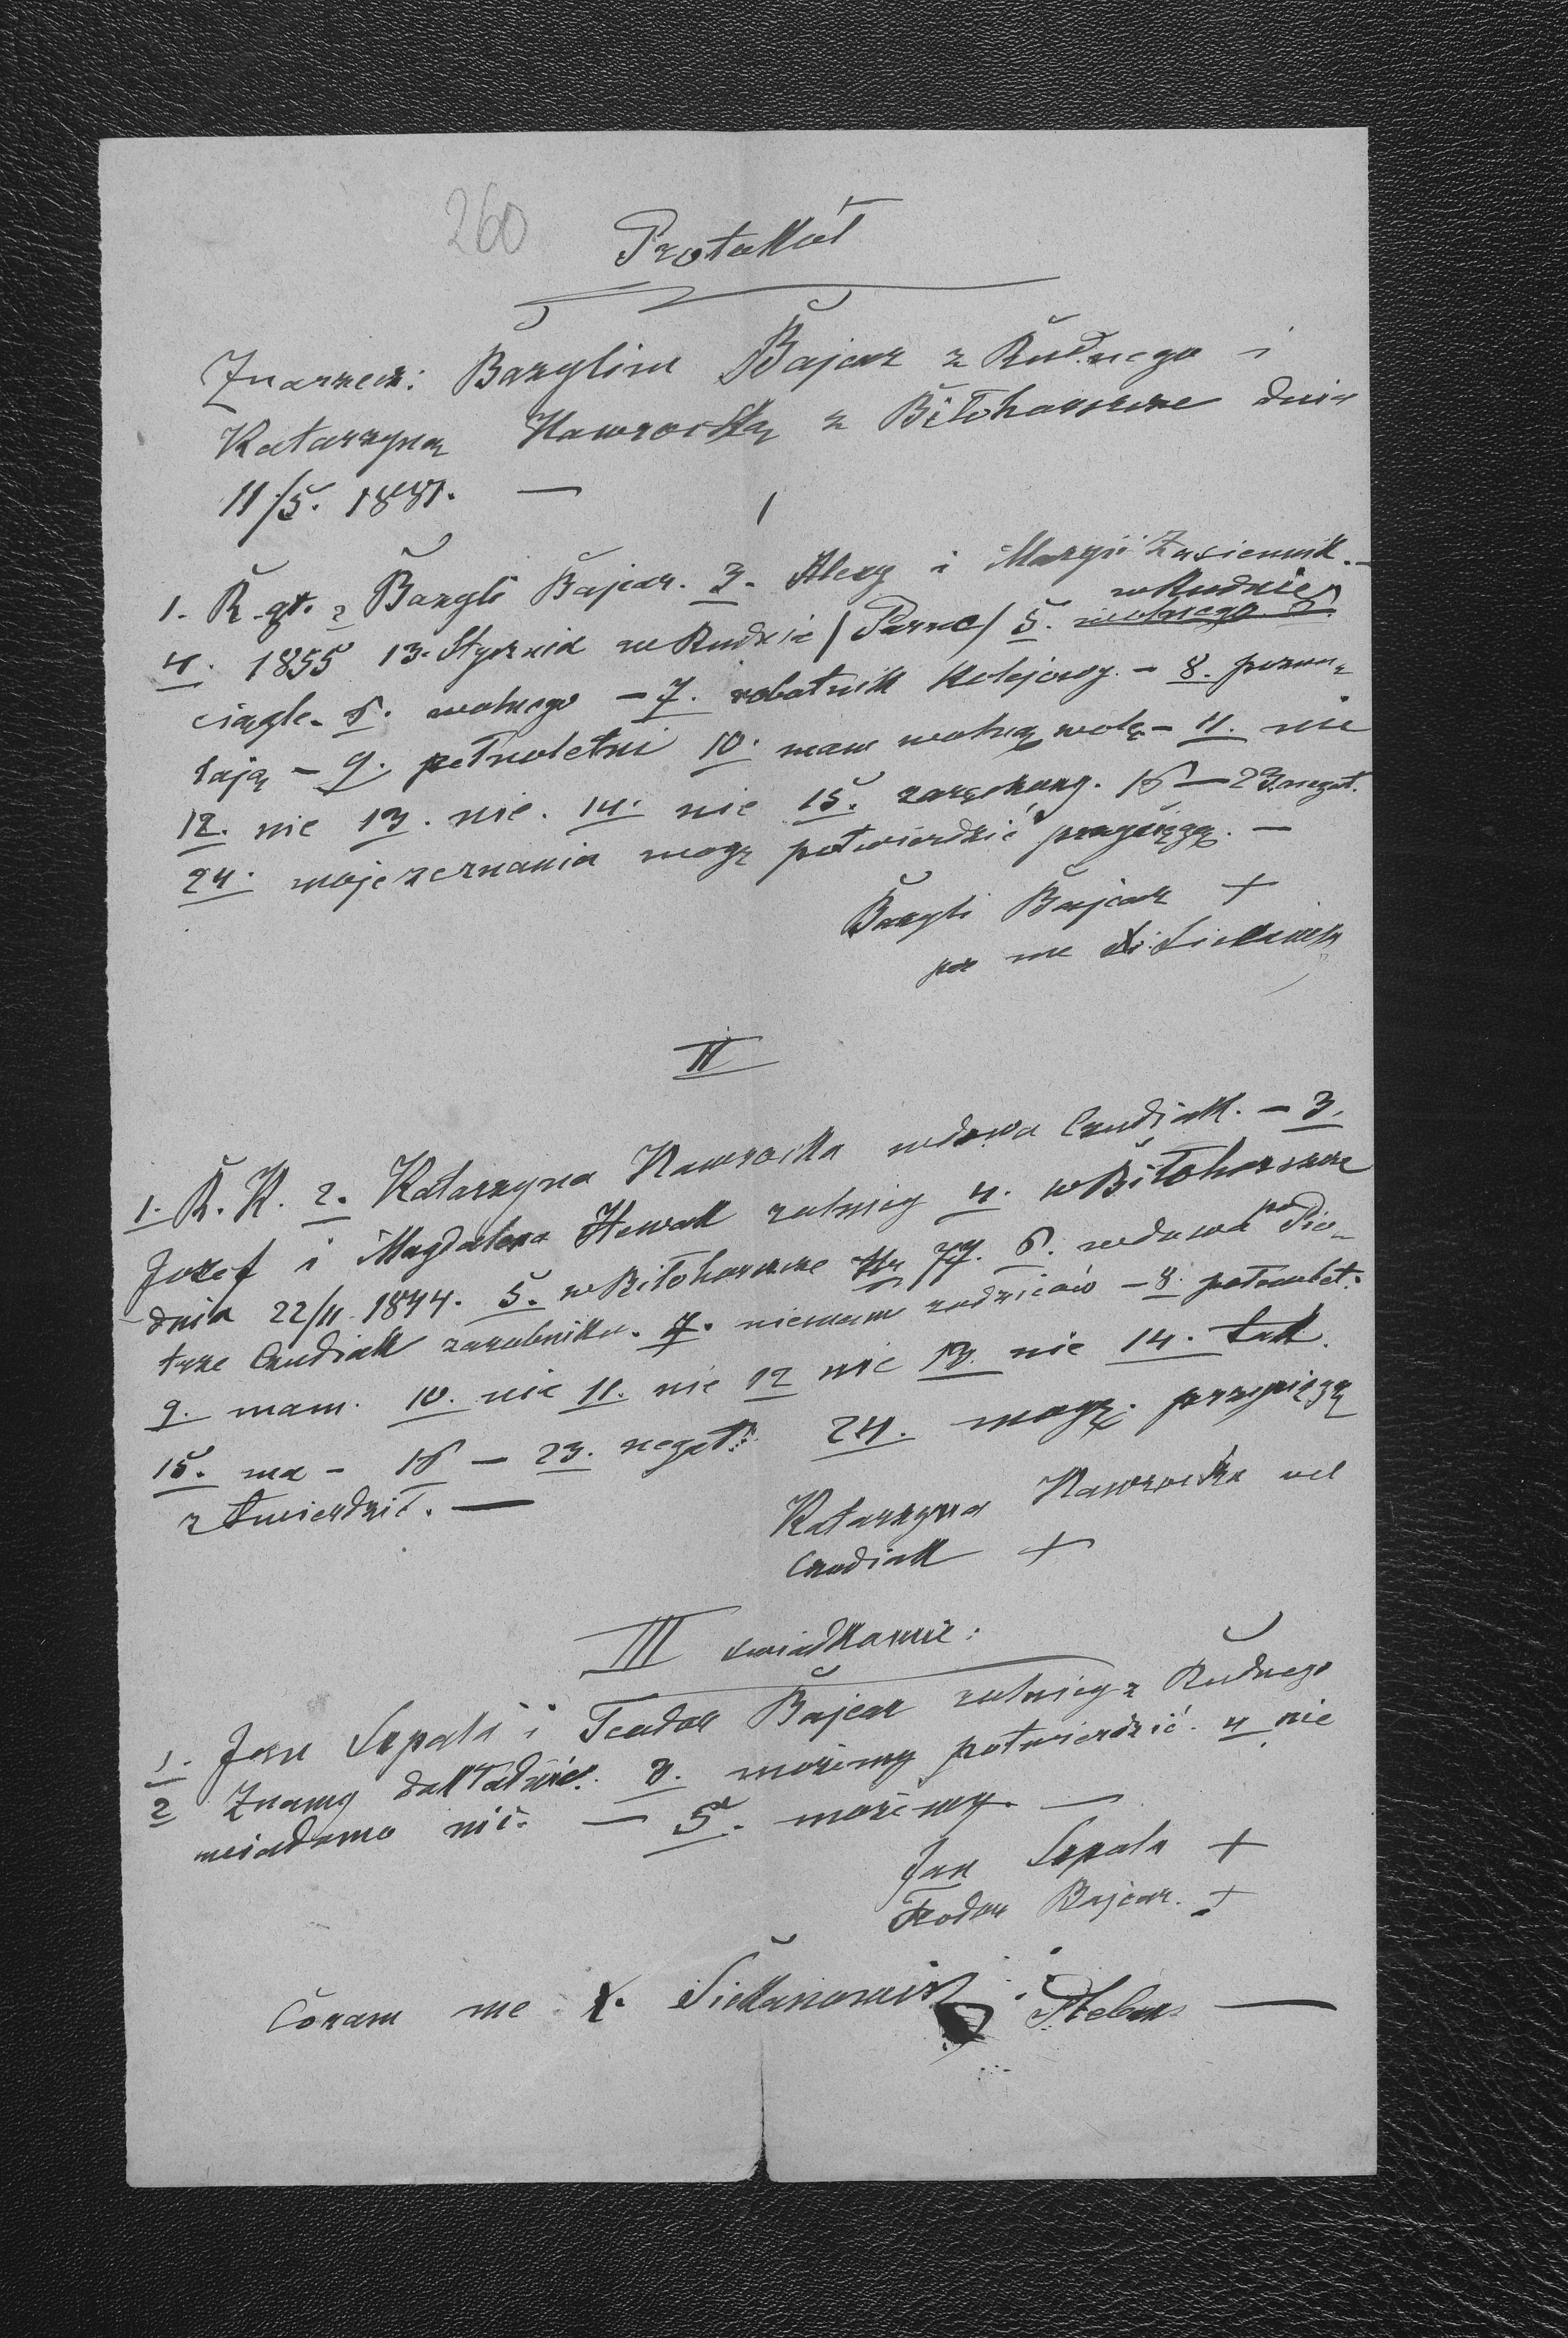 260
Protokół
Bazylim Bajcar z Rudnego i
Katarzyną Nawrocką z Biłohorszcze dnia
11/5. 1881. —
I
1. R. gr. 2 Bazyli Bajcar. 3. Alexy i Maryi
w Rudnie
4. 1855 13. Stycznia w Rudnie / 5.
ciągle. 6. wolnego — 7. robotnik kolejowy. — 8. pozwa-
lają — 9. pełnoletni 10. mam wolną wolę — 11. nie
12. nie 13. nie. 14. nie 15. 16 — 23. negat.
24. moje zeznania mogę potwierdzić przysięgą. —
Bazyli Bajcar +
II
1. R. K. 2. Katarzyna Nawrocka wdowa Czudiak. — 3.
Józef i Magdalena rolnicy 4. w Biłohorszcze
dnia 22/11 1844. 5. w Biłohorszcze Nr 77. 6. wdowa po Pio-
trze Czudiak zarobniku. 7. niemam rodziców — 8. pełnolet.
9. mam. 10. nie 11. nie 12 nie 13. nie 14. tak.
15. ma — 16 — 23. negat. 24. mogę przysięgą
ztwierdzić. —
Katarzyna Nawrocka vel
Czudiak +
III świadkowie:
1. Jan i Teodor Bajcar rolnicy z Rudnego
2 Znamy dokładnie. 3. możemy potwierdzić. 4 nie
wiadomo nic. — 5. możemy. —
Jan +
Teodor Bajcar. +
Coram me X. —